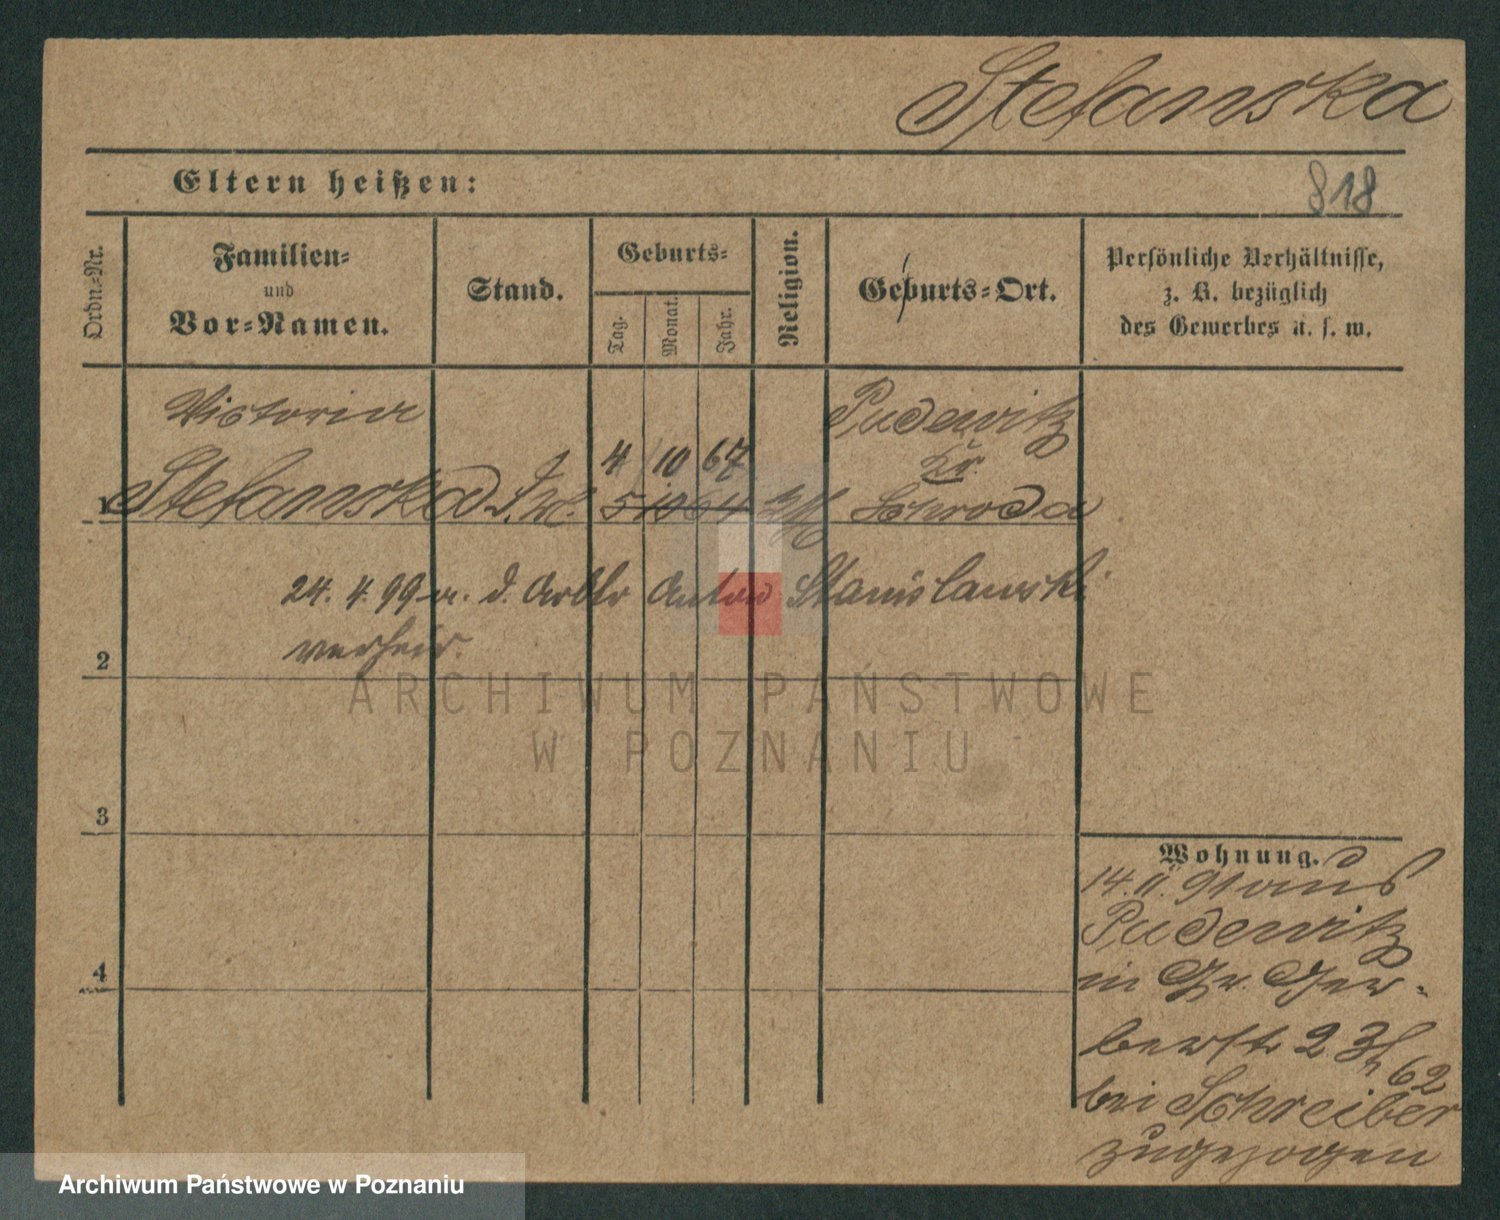 Stefanska
Eltern heißen:
818
Ordn.-Nr.
Familien-
und
Vor-Namen.
Stand.
Geburts-
Tag.
Monat.
Jahr.
Religion.
Geburts-Ort.
Persönliche Verhältnisse,
z. B. bezüglich
des Gewerbes u. s. w.
Victoria
Pudewitz
4 10 67
Kr.
1 Stefanska 5 10 64 Schroda
24. 4. 99 m. d. Arbtr Anton Stanislawski
verheir.
2
3
4
ARCHIWUM PAŃSTWOWE
W POZNANIU
Wohnung.
14. 11. 91 aus
Pudewitz
in Gr. Ger-
berstr 2
62
bei Schreiber
zugezogen
Archiwum Państwowe w Poznaniu